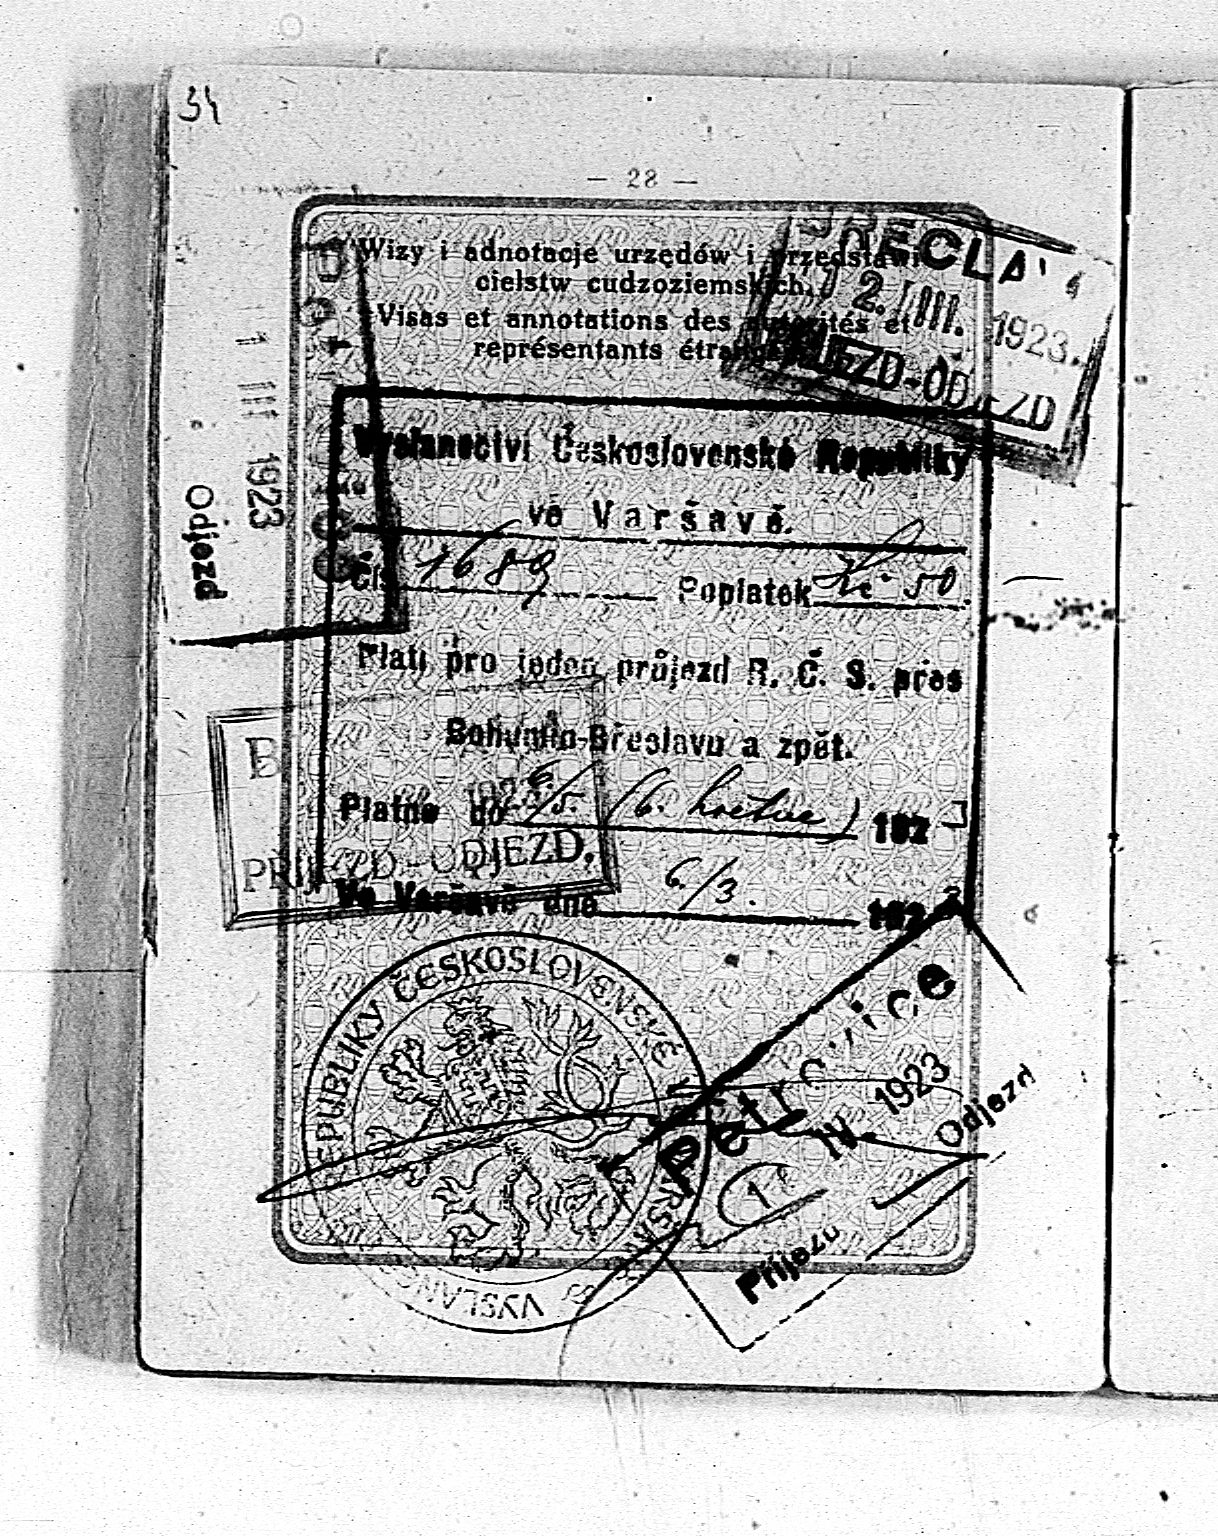 34
— 28 —
Wizy i adnotacje urzędów i przedstawi
cielstw cudzoziemskich.
Visas et annotations des autorités et
représentants
BŘECLAV
12. III. 1923.
PŘÍJEZD-ODJEZD
1 III 1923
Odjezd
Vyslanectví Československé Republiky
ve Varšavě.
Čís. 1689 Poplatek Kč 50
Platí pro jeden průjezd R. Č. S. přes
Bohumín-Břeslavu a zpět.
Platno do 6/5. (6. května) 192
Ve Varšavě dne 6./3. 192 3
B
PŘÍJEZD-ODJEZD.
REPUBLIKY ČESKOSLOVENSKÉ
VYSLANC
Petrovice
1 IV. 1923
Odjezd
Příjezd